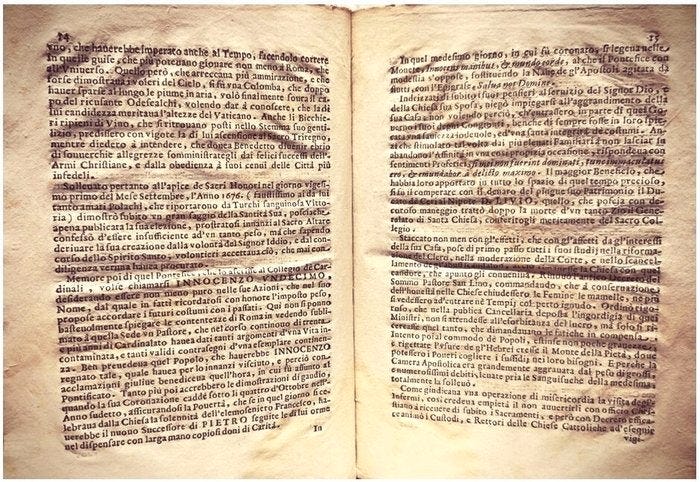 14
vno, che hauerebbe imperato anche al Tempo, facendolo correre
in quelle guise, che più poteuano giouare non meno à Roma, che
all'Vniuerso. Quello però, che arreccaua più ammirazione, e che
forse dimostraua i voleri del Cielo, si fù vna Colomba, che doppo
hauer sparse al lungo le piume in aria, volò finalmente soura il ca-
po del ricusante Odescalchi, volendo dar à conoscere, che la di
lui candidezza meritaua l'altezze del Vaticano. Anche li Bicchie-
ri ripieni di Vino, che si ritrouano posti nello Stemma suo genti-
litio, predissero con vigore la di lui ascensione al Sacro Triregno,
mentre diedero à intendere, che doueua Benedetto diuenir ebrio
di souerchie allegrezze somministrategli dai felici successi dell'
Armi Christiane, e dalla obedienza à suoi cenni delle Città più
infedeli.
Solleuato pertanto all'apice de Sacri Honori nel giorno vigesi-
mo primo del Mese Settembre, l'Anno 1676. (faustissimo al dì lui
tanto amati Polachi, che riportarono da Turchi sanguinosa Vitto-
ria) dimostrò subito vn gran saggio della Santità Sua, posciache
apena publicata la sua elezione, prostratosi innanzi al Sacro Altare
confessò d'essere insufficiente ad vn tanto peso, mà che sapendo
deriuare la sua creazione dalla volontà del Signor Iddio, e dal con-
corso dello Spirito Santo, volontieri accettaua ciò, che mai con
diligenza veruna haueua procurato.
Memore poi di quel Pontefice, che lo ascrisse al Collegio de Car-
dinali, volse chiamarsi INNOCENZO VNDECIMO,
desiderando essere non meno puro nelle sue Azioni, che nel suo
Nome, dal quale in fatti ricordatosi con honore l'imposto peso,
propose accordare i futuri costumi con i passati. Qui non si ponno
bastenolmente spiegare le contentezze di Roma in vedendo subli-
mato à quella Sede vn Pastore, che nel corso continuo di trenta,
e più anni di Cardinalato haueua dati tanti argomenti d'vna Vita in-
contaminata, e tanti validi contrasegni d'vna esemplare continen-
za. Ben preuedeua quel Popolo, che hauerebbe INNOCENZO
regnato tale, quale haueua per lo innanzi visciuto, e perciò con
acclamazioni giuliue benediceua quell'hora, in cui fù assunto al
Pontificato. Tanto più poi accrebbero le dimostrazioni di gaudio,
quando la sua Coronazione cadde sotto li quattro d'Ottobre nell'
Anno sudetto, assicurandosi la Pouertà, che se in quel giorno si ce-
lebraua dalla Chiesa la solennità dell'elemosiniero Francesco, ha-
uerebbe il nuouo Successore di PIETRO seguite le di lui orme
nel dispensare con larga mano copiosi doni di Carità.
In
15
In quel medesimo giorno, in cui fù coronato, si legeua nelle
Monete, Innocens manibus, & mundo corde, al che il Pontefice con
modestia s'oppose, sostituendo la Naue de gl'Apostoli agitata da
flutti, con l'Epigrafe, Salua nos Domine.
Indirizzati subito i suoi pensieri al seruicio del Signor Dio, e
della Chiesa sua Sposa, negò impiegarsi all'aggrandimento della
sua Casa; non volendo perciò, che entrassero in parte di quel Go-
uerno i suoi degni Congionti, benche di sempre fosse in loro spic-
cata vna singolar idolezza, ed vna santa integrità de costumi. An-
zi che stimolato tal volta dai più elenati Famigliari à non lasciar in
abandono l'Affinità in vna così propizia occasione, rispondeua con
sentimenti Profetici, Si mei non fuerint dominati, tunc immaculatus
ero, & emundabor à delicto maximo. Il maggior Beneficio, che
habbia loro apportato in tutto lo spazio di quel tempo prezioso,
si fù il comperare con il denaro del pingue suo Patrimonio il Du-
cato de Ceri al Nipote D. LIVIO, quello, che poscia con de-
coroso maneggio trattò doppo la morte d'vn tanto Zio il Gene-
ralato di Santa Chiesa, conferitogli meritamente dal Sacro Col-
legio.
Staccato non men con gl'effetti, che con gl'affetti da gl'interessi
della sua Casa, pose di primo passo tutti i suoi studij nella riforma-
zione del Clero, nella moderazione della Corte, e nello scancel-
Sommo Pastore San Lino, commandando, che à conseruazione
dell'honestà nelle Chiese chiudessero le Femine le mammelle, ne più
si vedessero ad entrare ne Tempij col petto ignudo. Ordinò rigo-
roso, che nella publica Cancellaria deposta l'ingordigia di quei
Ministri, non s'attendesse all'esorbitanza del lucro; mà solo si ri-
cercasse quel tanto, che dimandauano le fatiche in compensa.
Intento poi al commodo de Popoli, estinse non poche grauezze,
e rigettate l'vsure de gl'Hebrei eresse il Monte della Pietà, doue
potessero i Poueri cogliere i sussidij ne loro bisogni. E perche la
Camera Apostolica era grandemente aggrauata dal peso di grossi,
e numerosissimi debiti, leuate pria le Sanguisughe della medesima
totalmente la solleuò.
Come giudicaua vna operazione di misericordia la visita degl'
Infermi, così credeua empietà il non auuertirli con officio Chri-
stiano à riceuere di subito i Sacramenti, e però con Decreto effica-
ce animò i Custodi, e Rettori delle Chiese Cattoliche ad esequire
vigi-